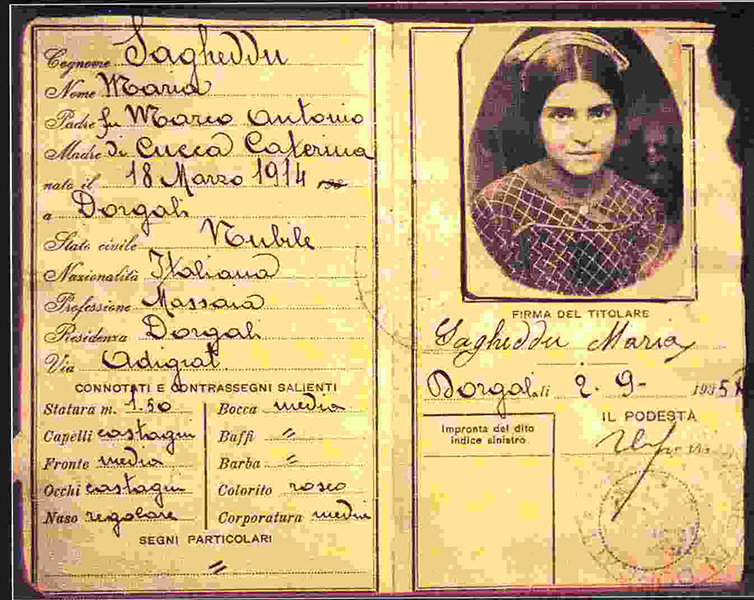 Cognome Sagheddu
Nome Maria
Padre fu Marco Antonio
Madre di Cucca Caterina
nato il 18 Marzo 1914
a Dorgali
Stato civile Nubile
Nazionalità Italiana
Professione Massaia
Residenza Dorgali
Via Adigrat
CONNOTATI E CONTRASSEGNI SALIENTI
Statura m. 1.50
Capelli castagni
Fronte media
Occhi castagni
Naso regolare
Bocca media
Baffi =
Barba =
Colorito roseo
Corporatura media
SEGNI PARTICOLARI
=
FIRMA DEL TITOLARE
Sagheddu Maria
Dorgali li 2-9-1935
IL PODESTÀ
Impronta del dito
indice sinistro